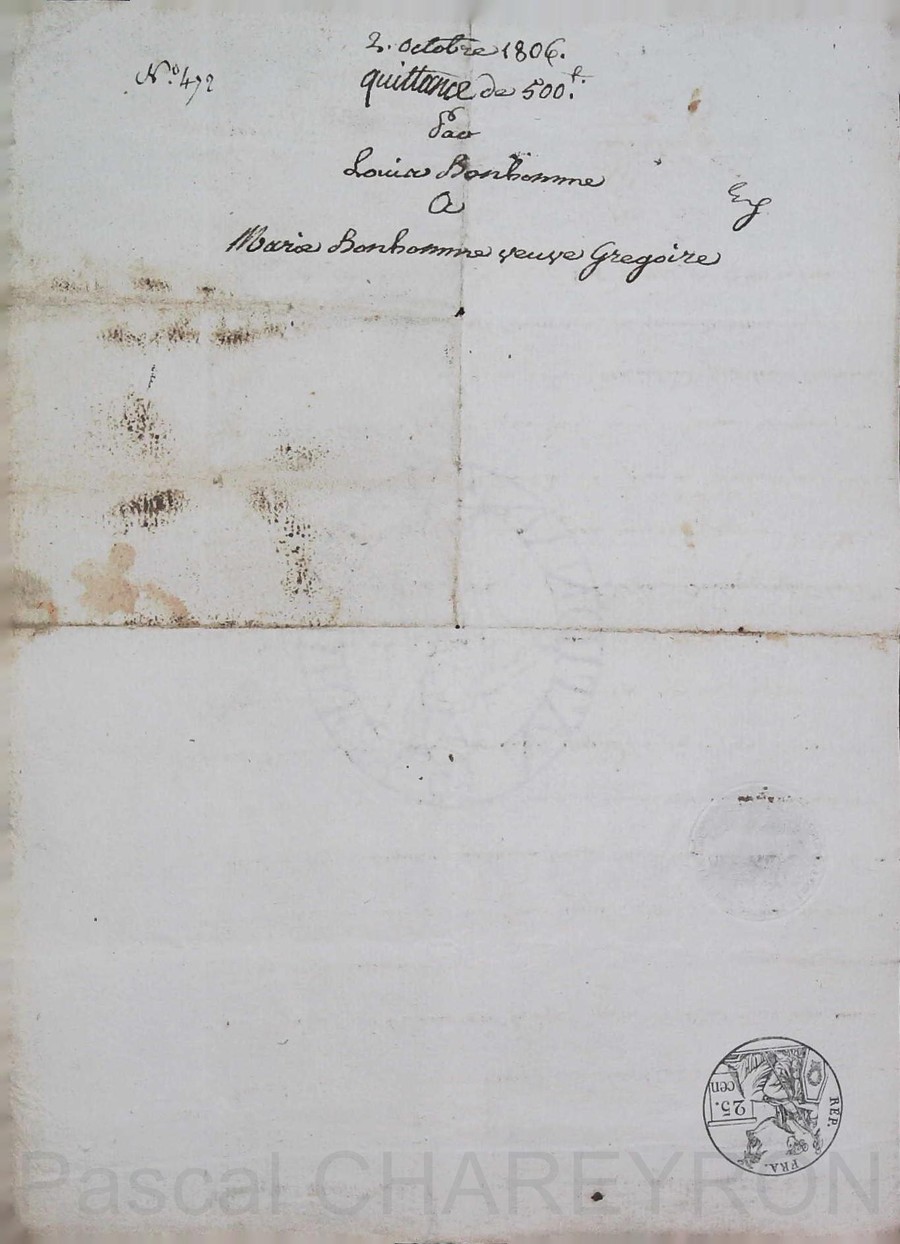 2. octobre 1806.
N.o 472
quittance de 500.f.
Par
Louis Bonhomme
A
Marie Bonhomme veuve Gregoire
25.
cen
REP.
FRA.
Pascal CHAREYRON